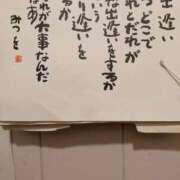 出逢い
つどこで
れとだれが
な出逢いをするか
いう
り逢いを
るか
れが大事なんだ
なあ
みつを